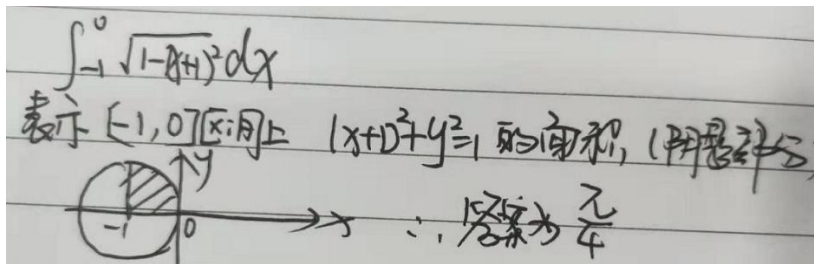 ∫₋₁⁰ √(1-(x+1)²) dx
表示 [-1,0]区间上 (x+1)²+y²=1 的面积, (阴影部分)
y
-1 0 x ∴ 答案为 π/4